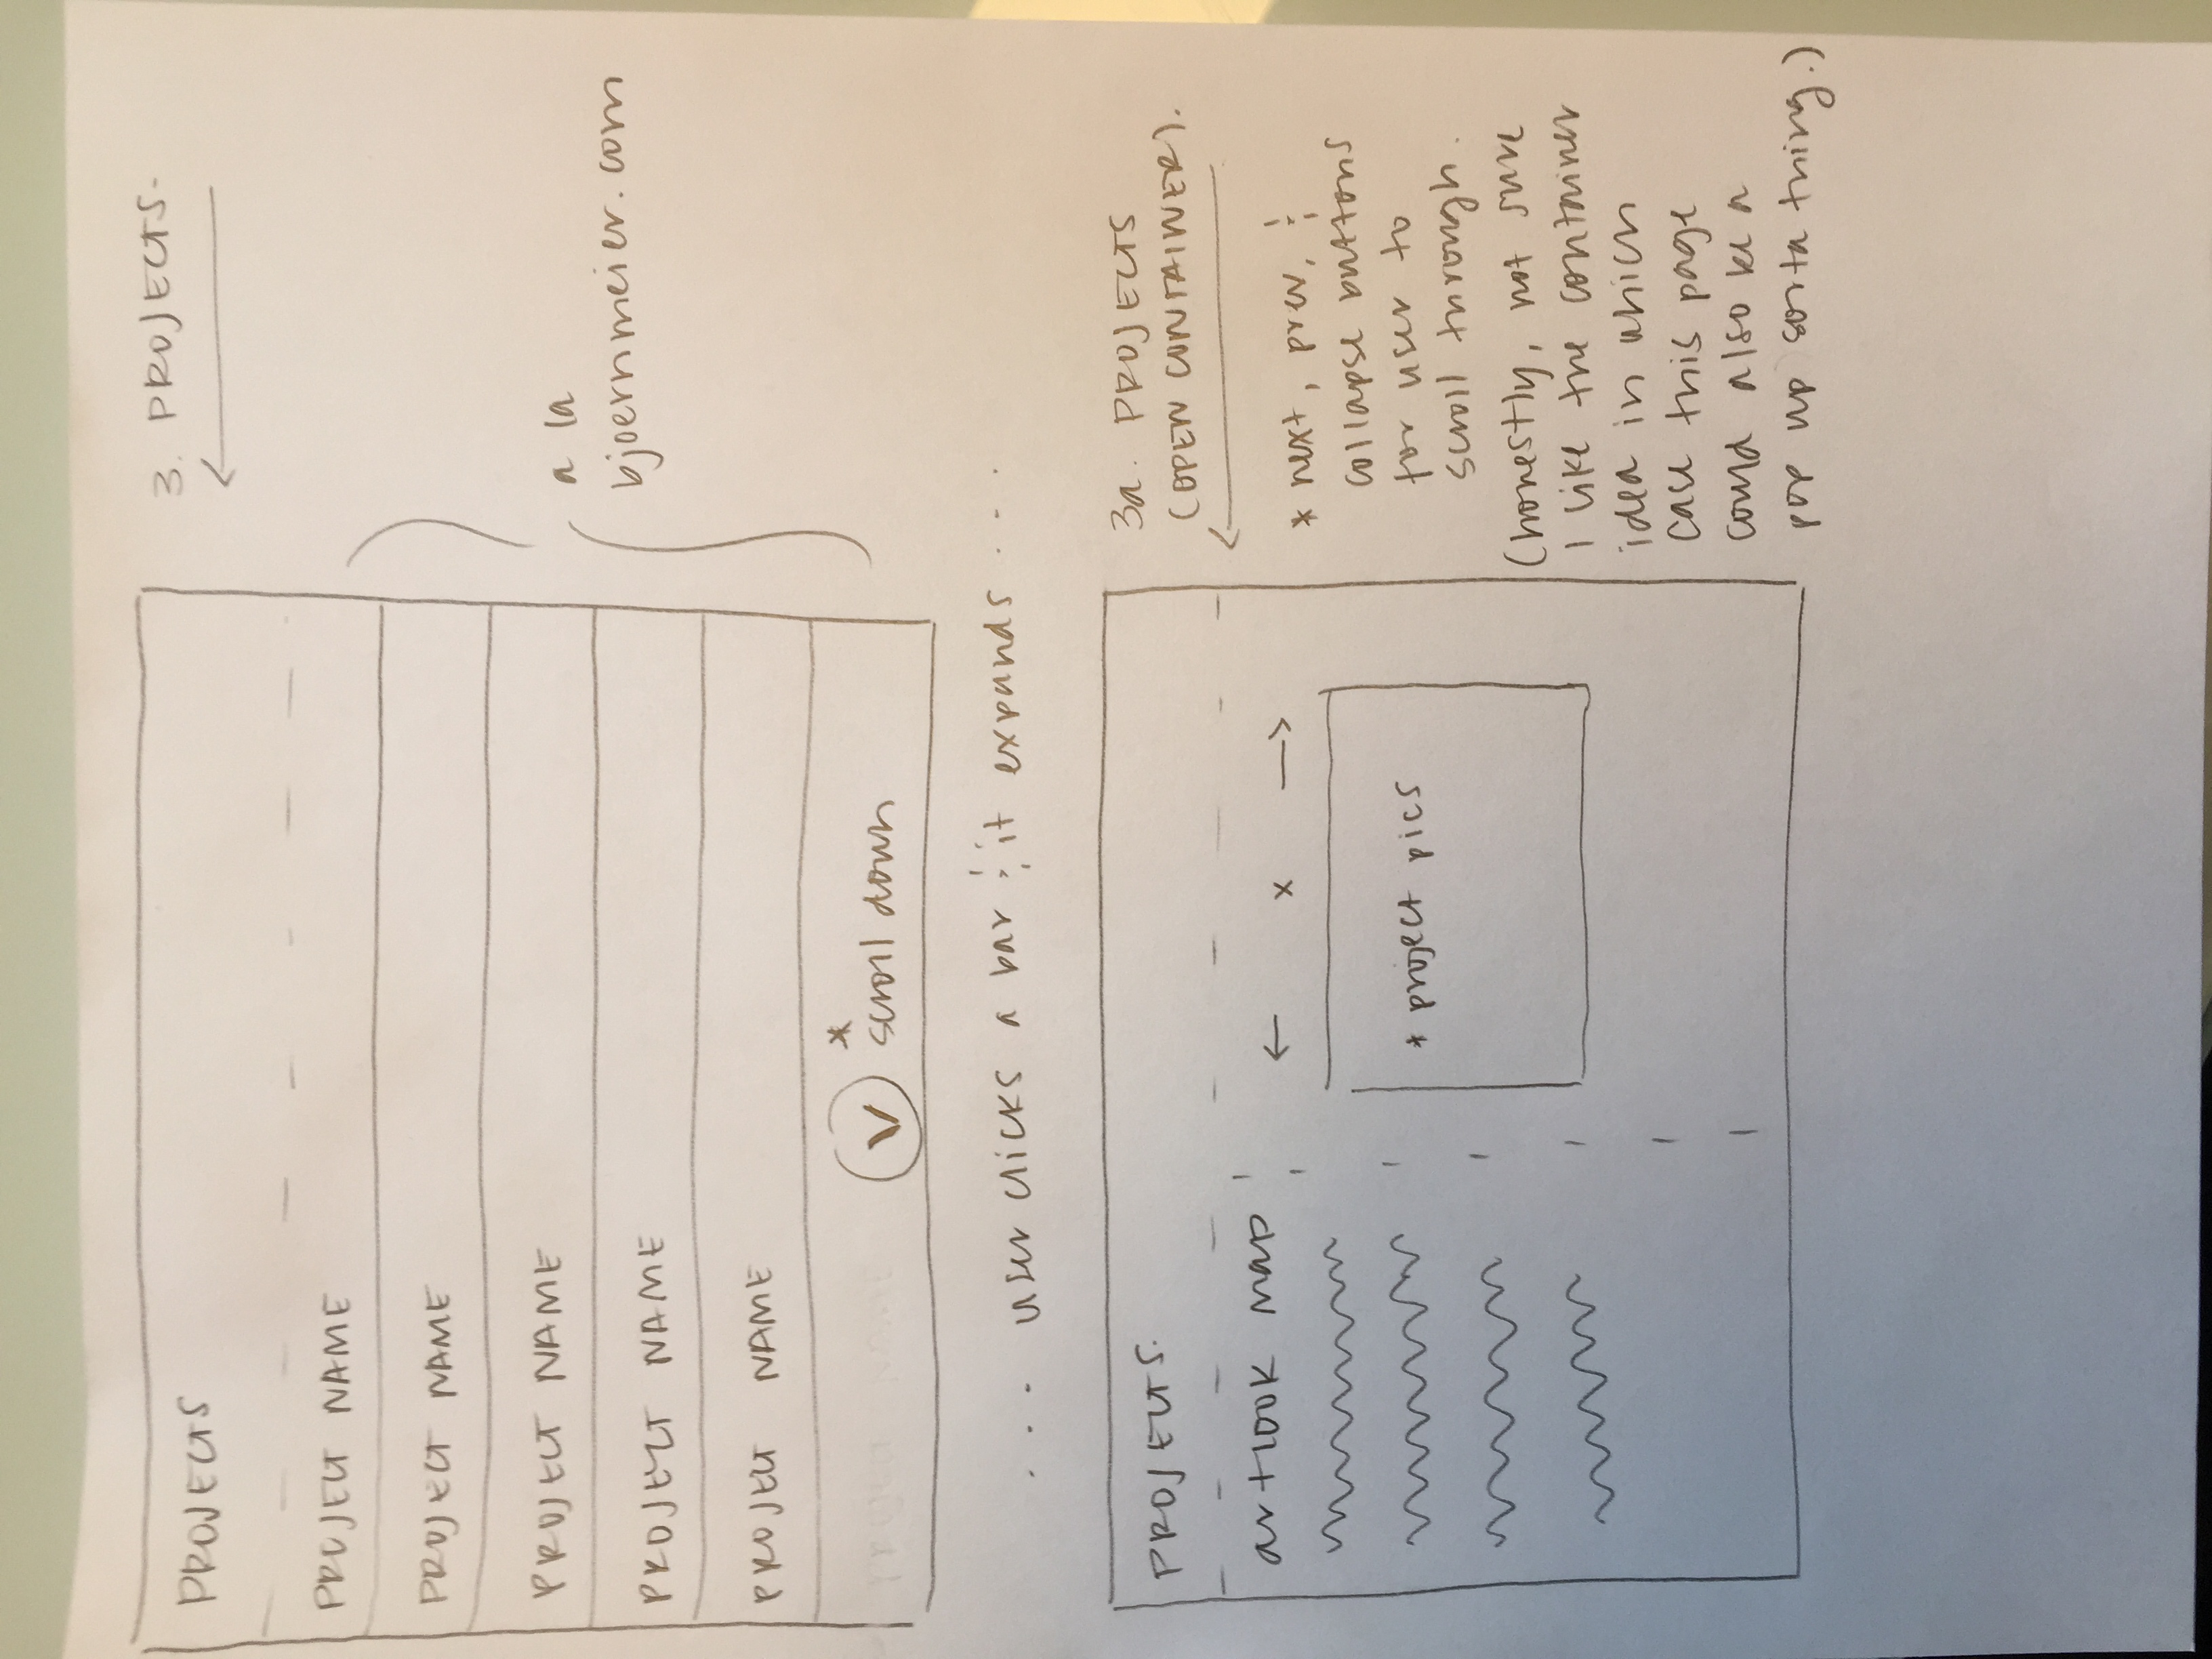 3. PROJECTS.
PROJECTS
PROJECT NAME
PROJECT NAME
PROJECT NAME
PROJECT NAME
PROJECT NAME
PROJECT NAME
* scroll down
a la
bjoernmeier.com
... user clicks a bar & it expands ...
PROJECTS.
artlook map
← x →
* project pics
3a. PROJECTS
(OPEN CONTAINER).
* next, prev, &
collapse buttons
for user to
scroll through.
(honestly, not sure
I like the container
idea in which
case this page
could also be a
pop up sorta thing.)